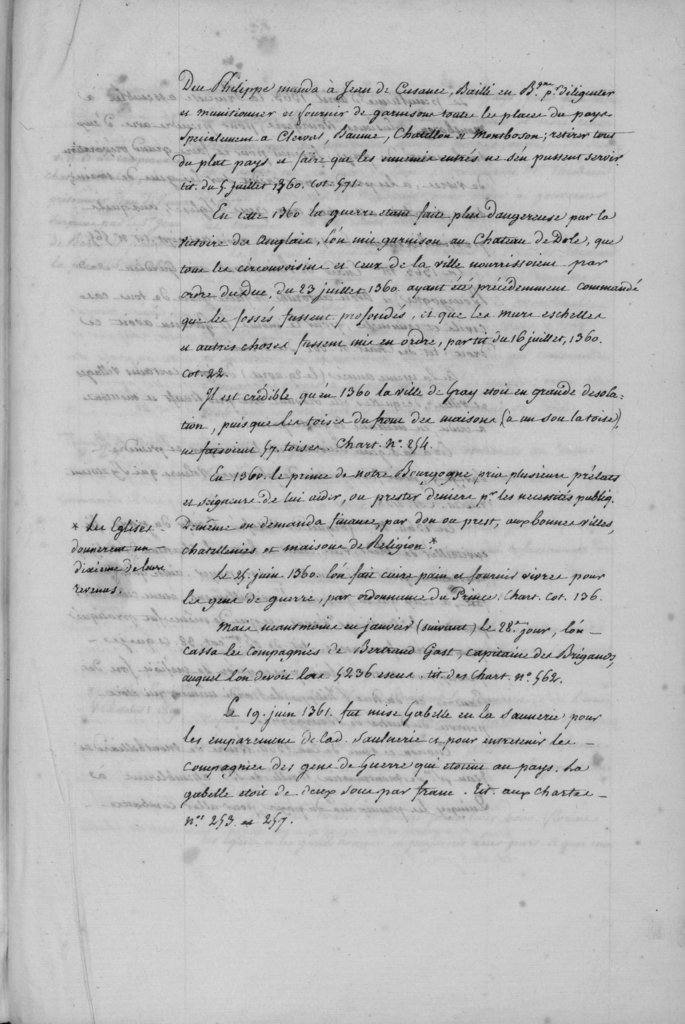 Duc Philippe manda à Jean de Cusance, Bailli en B.gne p.r diligenter
et munitionner et fournir de garnisons toutes les places du pays
specialement a Clerval, Baume, Chatillon et Montboson; retirer tout
du plat pays et faire que les ennemis entrés ne s'en pussent servir.
tit. du 5. juillet 1360. cot. 571.
En cette 1360 la guerre etant faite plus dangereuse par la
victoire des Anglais, l'on mit garnison au Chateau de Dole, que
tous les circonvoisins et ceux de la ville nourrissoient par
ordre du Duc, du 23 juillet 1360. ayant été précédemment commandé
que les fossés fussent profondés, et que les murs eschelles
et autres choses fussent mis en ordre, par tit. du 16 juillet, 1360.
cot. 22.
Il est crédible qu'en 1360 la ville de Gray etoit en grande desola-
tion, puisque les toises du front des maisons (à un sou la toise),
ne faisoient 57. toises. Chart. N.o 254.
En 1360. le prince de notre Bourgogne pria plusieurs prélats
et seigneurs de lui aider, ou prester deniers p.r les necessités publiq.
De même on demanda finance, par don ou prest, aux bonnes villes,
chatellenies et maisons de Religion.*
* Les Eglises
donnerent un
dixieme de leurs
revenus.
Le 25. juin 1360. l'on fait cuire pain et fournir vivres pour
les gens de guerre, par ordonnance du Prince. Chart. cot. 136.
Mais neantmoins en janvier (suivant) le 28.e jour, l'on
cassa les compagnies de Bertrand Gast, capitaine des Brigands,
auquel l'on devoit lors 5236. escus. tit. des Chart. n.o 562.
Le 19. juin 1361. fut mise Gabelle en la Saunerie pour
les emparemens de lad. Saulnerie et pour entretenir les
compagnies des gens de Guerre qui etoient au pays. La
gabelle etoit de deux sous par franc. tit. aux Chartes
n.os 253. et 257.